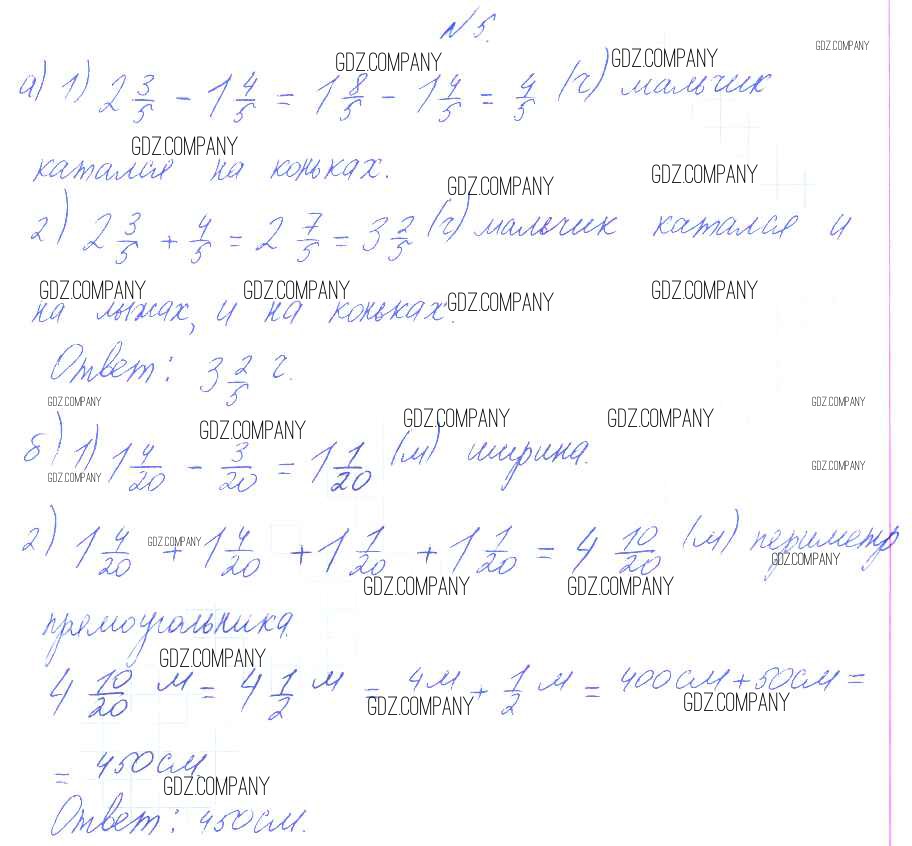 №5.
GDZ.COMPANY GDZ.COMPANY GDZ.COMPANY
а) 1) 2 3/5 - 1 4/5 = 1 8/5 - 1 4/5 = 4/5 (ч) мальчик
GDZ.COMPANY
катался на коньках.
GDZ.COMPANY GDZ.COMPANY
2) 2 3/5 + 4/5 = 2 7/5 = 3 2/5 (ч) мальчик катался и
GDZ.COMPANY GDZ.COMPANY GDZ.COMPANY GDZ.COMPANY
на лыжах, и на коньках.
Ответ: 3 2/5 ч.
GDZ.COMPANY GDZ.COMPANY
GDZ.COMPANY GDZ.COMPANY GDZ.COMPANY
б) 1) 1 4/20 - 3/20 = 1 1/20 (м) ширина.
GDZ.COMPANY GDZ.COMPANY
2) 1 4/20 + 1 4/20 + 1 1/20 + 1 1/20 = 4 10/20 (м) периметр
GDZ.COMPANY GDZ.COMPANY
GDZ.COMPANY GDZ.COMPANY
прямоугольника.
GDZ.COMPANY
4 10/20 м = 4 1/2 м = 4м + 1/2 м = 400см + 50см =
GDZ.COMPANY GDZ.COMPANY
= 450см.
GDZ.COMPANY
Ответ: 450см.